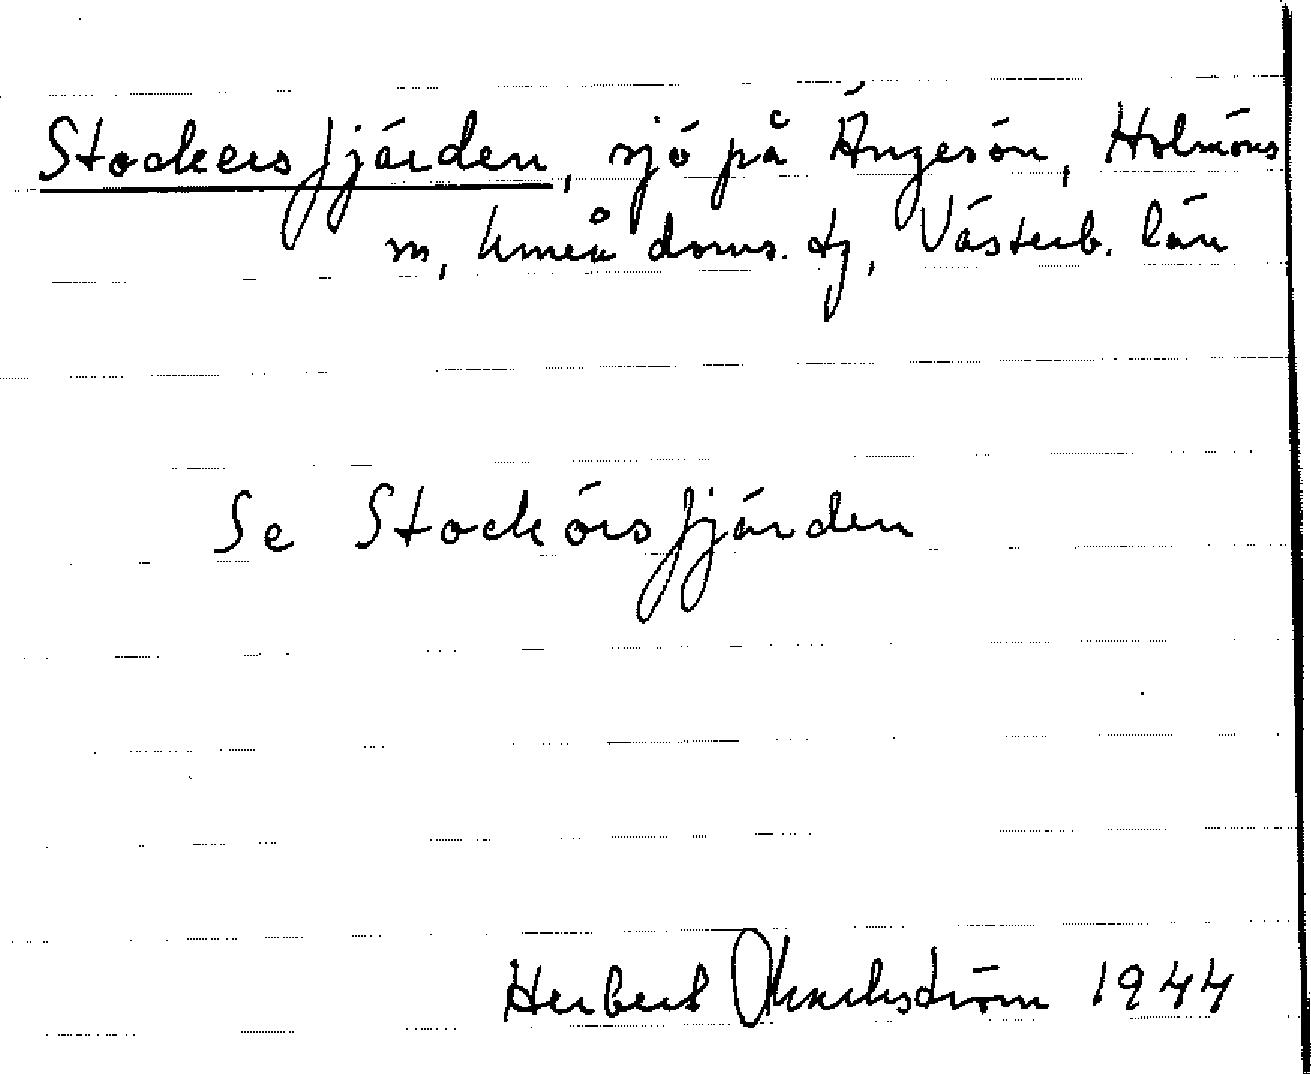 Stockersfjärden, sjö på Ängesön, Holmöns
sn, Umeå doms. tg, Västerb. län
Se Stockörsfjärden
Herbert Markström 1944